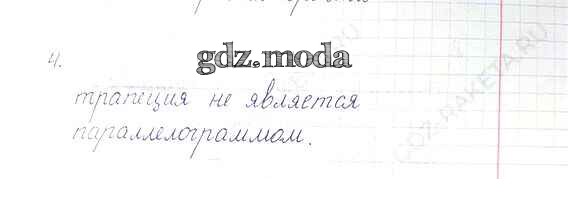 4.
gdz.moda
трапеция не является
параллелограммом.
GDZ-RAKETA.RU